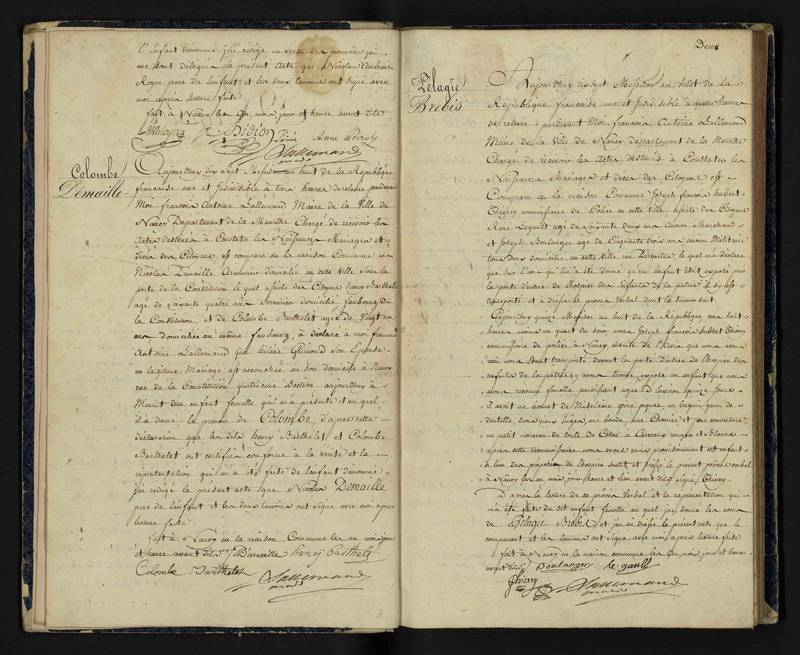 l'Enfant dénommé j'ai rédigé en vertu des pouvoirs qui
me sont délégués le présent Acte que Nicolas
Royer père de l'enfant et les deux témoins ont signé avec
moi après lecture faite
fait à Nancy les An, mois, jour et heure avant dits
Didion Anne
Lallemand
maire
Colombe
Demaille
Aujourdhuy dix Sept Messidor an huit de la République
française une et Indivisible à trois heures de relevée pardevant
Moi françois Antoine Lallemand Maire de la Ville de
Nancy Departement de la Meurthe Chargé de recevoir les
Actes destinés à Constater les Naissances Mariages et
décès des Citoyens est comparu en la maison Commune
Nicolas Demaille domicilié en cette Ville
porte de la Constitution le quel assisté des Citoyens henry Barthelet
agé de soixante quatre ans domicilié faubourg de
la Constitution et de Colombe Barthelet agée de Vingt un
ans domiciliée au même faubourg, à déclaré à moi françois
Antoine Lallemand que hélène Grimond Son Epouse
en légitime Mariage est accouchée en son domicile à Nancy
rue de la Constitution quatrième Section aujourdhuy à
Minuit d'un enfant femelle qu'il m'a présenté et au quel
il a donné le prénom de Colombe, d'après cette
déclaration que les dits henry Barthelet et Colombe
Barthelet ont certifiée conforme à la vérité et la
représentation qui m'a été faite de l'enfant dénommé
j'ai rédigé le présent acte que Nicolas Demaille
père de l'enfant et les deux témoins ont signé avec moi après
lecture faite
fait à Nancy en la maison Commune les an mois jour
et heure avant dits Demaille henry barthelet
Colombe Barthelet
Lallemand
maire
Deux
Pélagie
Brebis
Aujourdhuy dix sept Messidor an huit de la
République française une et Indivisible à quatre heures
de relevée pardevant Moi françois Antoine Lallemand
Maire de la Ville de Nancy département de la Meurthe
Chargé de recevoir les Actes destinés à Constater les
Naissances Mariages et décès des Citoyens est
Comparu en la maison Commune Joseph françois hubert
Thiery commissaire de Police en cette Ville assisté des Citoyens
René Legault agé de soixante deux ans Ancien Marchand
et Joseph Boulanger agé de Cinquante trois ans ancien Militaire
tous deux domiciliés en cette Ville le quel m'a déclaré
que sur l'avis qui lui a été donné qu'un enfant était exposé près
la porte d'entrée de l'hospice des Enfants de la patrie il s'y est
transporté et a dressé le procès Verbal dont la teneur suit
Cejourdhuy quinze Messidor an huit de la République sur huit
heures moins un quart du soir, nous Joseph françois hubert Thiery
commissaire de police à Nancy ensuite de l'avis que nous avons
reçu nous étant transporté devant la porte d'entrée de l'hospice des
enfants de la patrie y avons trouvé exposé un enfant que nous
avons reconnu femelle paraissant agée d'environ quinze jours
ayant un bonnet de Mitelaine grise piquée, un béguin garni de
dentelle, trois une bande, une Chemise et une couverture,
un petit morceau de toile de Coton à Carreaux rouges et Blancs
après cette reconnaissance nous avons remis provisoirement cet enfant
à l'un des préposés de l'hospice susdit, et dressé le présent procès verbal
à Nancy les an mois, jour, heure et lieu avant dits Signé Thiery.
D'après la lecture de ce procès Verbal et la représentation qui
m'a été faite du dit enfant femelle au quel j'ai donné les noms
de Pélagie Brebis et j'en ai dressé le présent acte que le
comparant et les témoins ont signé avec moi après lecture faite
fait à Nancy en la maison commune les an, mois, jour et heure
avant dits Boulanger le gault
Thiery
Lallemand
maire